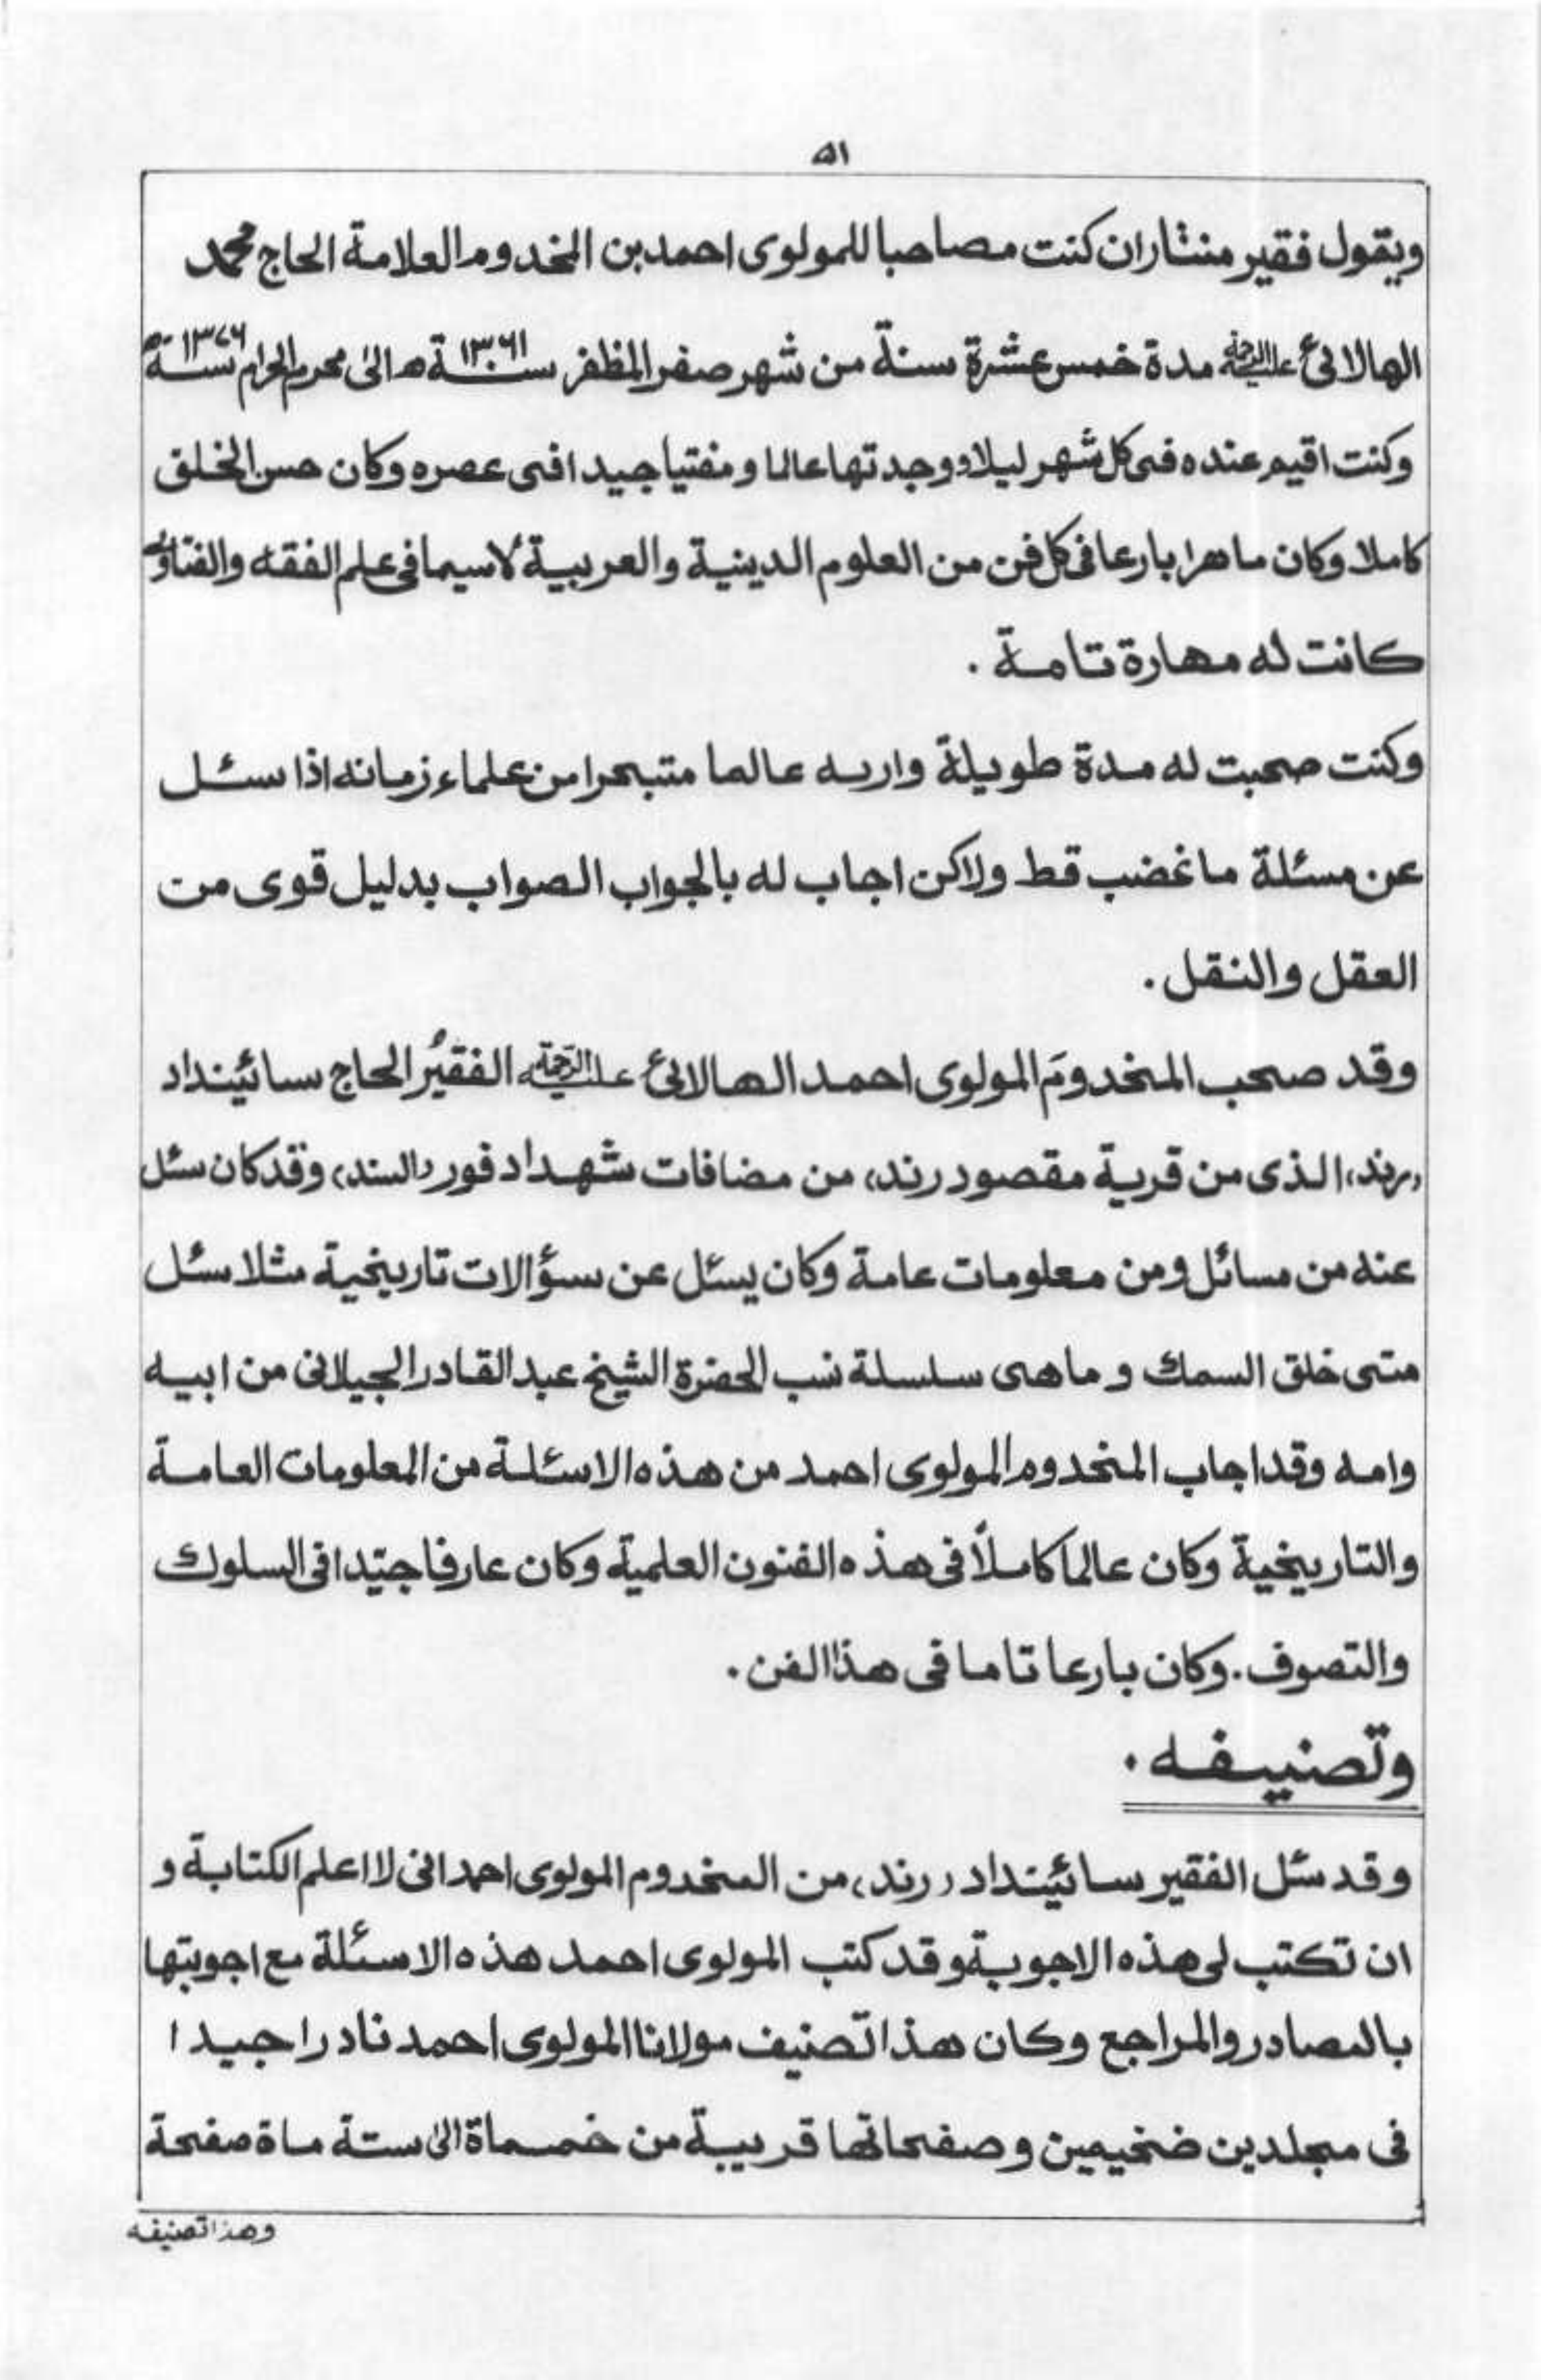 ۵۱
ويقول فقير منثاران كنت مصاحبا للمولوى احمد بن المخدوم العلامة الحاج محمد
الهالائیؒ عليه الرحمة مدة خمس عشرة سنة من شهر صفر المظفر سنة ۱۳۶۱ھ الیٰ محرم الحرام سنة ۱۳۷۶ھ
وكنت اقيم عنده فى كل شهر ليلا ووجدتها عالما و مفتيا جيدا فى عصره وكان حسن الخلق
كاملا وكان ماهرا بارعا فى كل فن من العلوم الدينية والعربية لاسيما فى علم الفقه والفتاوىٰ
كانت له مهارة تامة .
وكنت صحبت له مدة طويلة واريه عالما متبحرا من علماء زمانه اذا سئل
عن مسئلة ما غضب قط ولاكن اجاب له بالجواب الصواب بدليل قوى من
العقل والنقل .
وقد صحب المخدومَ المولوى احمد الهالائی عليه الرّحمة الفقيرُ الحاج سائينداد
(رند) الذى من قرية مقصود رند، من مضافات شهداد فور (السند) وقد كان سئل
عنه من مسائل ومن معلومات عامة وكان يسئل عن سؤالات تاريخية مثلا سئل
متى خلق السمك و ماهى سلسلة نسب الحضرة الشيخ عبد القادر الجيلانى من ابيه
وامه وقد اجاب المخدوم المولوى احمد من هذه الاسئلة من المعلومات العامة
والتاريخية وكان عالما كاملاً فى هذه الفنون العلمية وكان عارفا جيّدا فى السلوك
والتصوف . وكان بارعا تاما فى هذا الفن .
وتصنيفه .
وقد سئل الفقير سائينداد (رند) من المخدوم المولوى احمد انى لا اعلم الكتابة و
ان تكتب لى هذه الاجوبة وقد كتب المولوى احمد هذه الاسئلة مع اجوبتها
بالمصادر والمراجع وكان هذا تصنيف مولانا المولوى احمد نادرا جيدا
فى مجلدين ضخيمين و صفحاتها قريبة من خمسماة الىٰ ستة ماة صفحة
وهذا تصنيفه